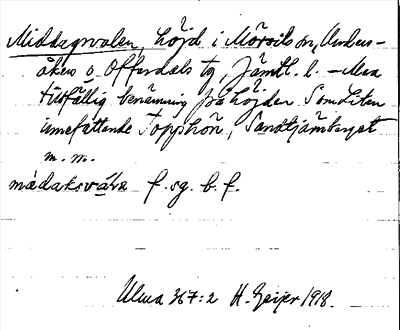 Middagsvalen, höjd i Mörsils sn, Unders-
åkers o. Offerdals tg, Jämtl. l. – Mera
tillfällig benämning på höjder
innefattande Topphön, Sandtjärnberget
m. m.
mádaksvála f. sg. b. f.
Ulma 367:2 H. Geijer 1918.